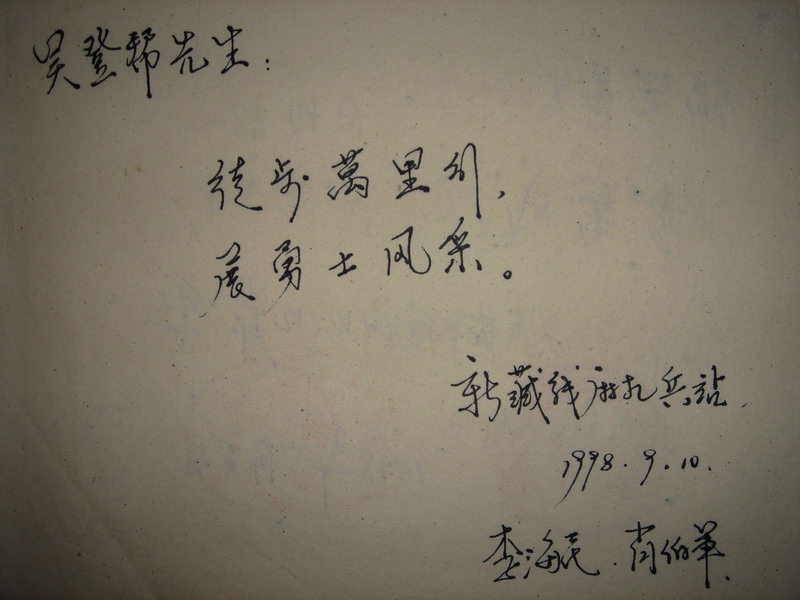 吴登稀先生：
徒步萬里外，
展勇士风采。
新藏线麻扎兵站
1998.9.10.
李海民.肖伯